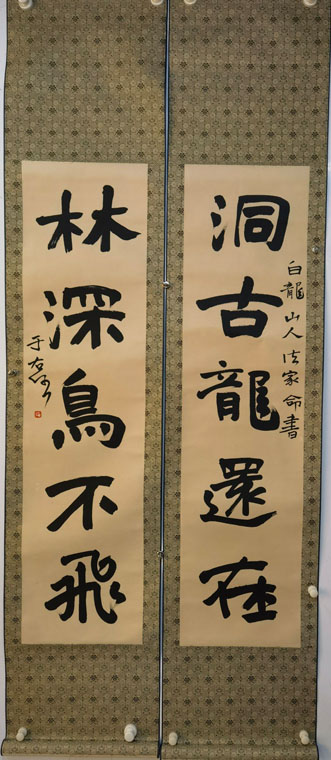 洞古龍還在
白龍山人法家命書
林深鳥不飛
于右任